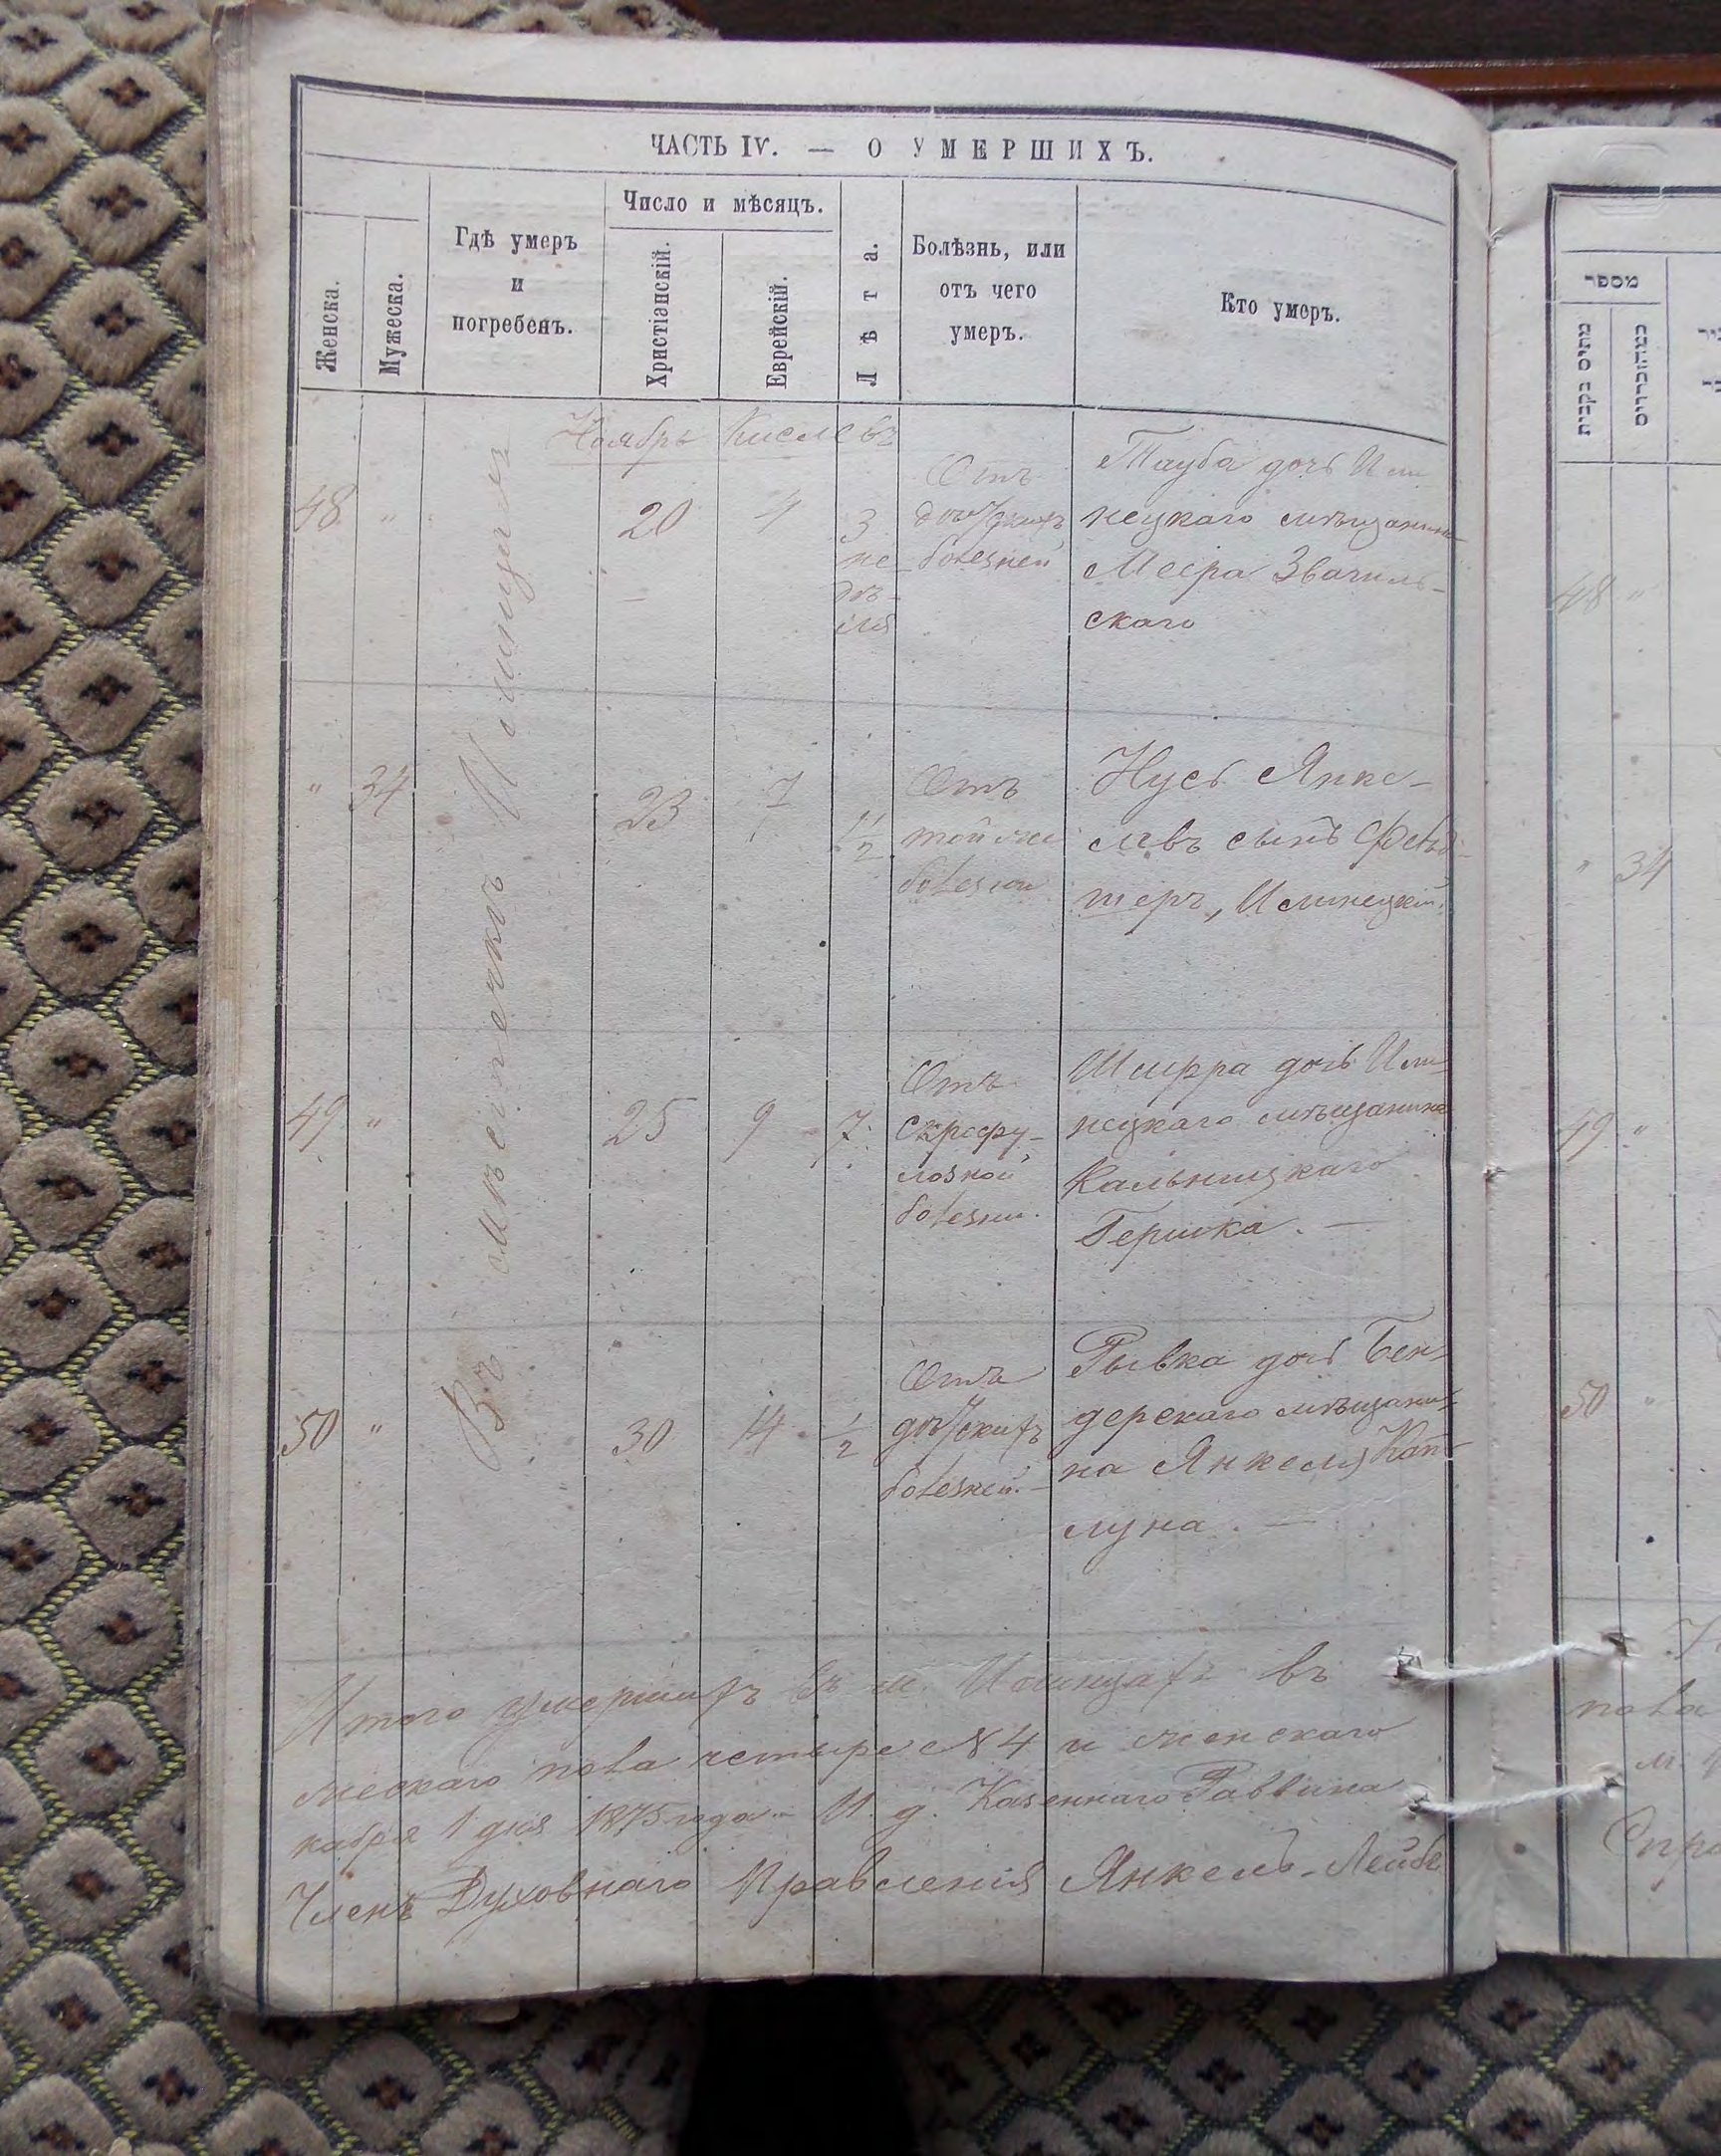 ЧАСТЬ IV. — О УМЕРШИХЪ.
Женска.
Мужеска.
Гдѣ умеръ
и
погребенъ.
Число и мѣсяцъ.
Христіанскій.
Еврейскій.
Лѣта.
Болѣзнь, или
отъ чего
умеръ.
Кто умеръ.
Въ мѣстечкѣ
Ноябрь Кислевъ
48 " 20 4
3
не-
дѣ-
ля
Отъ
дѣтскихъ
болезней
Тауба дочь Или
нецкаго мѣщанина
Меера Звачиль-
скаго
" 34 23 7 1 1/2
Отъ
той же
болезни
Нусь Янке-
левъ сынъ
теръ, Илинецкій
49 " 25 9 7
Отъ
скрофу-
лозной
болезни.
дочь Или
нецкаго мѣщанина
Кальницкаго
Гершка. —
50 " 30 14 1/2
Отъ
дѣтскихъ
болезней. —
Рывка дочь Бен-
дерскаго мѣщани-
на Янкеля Кап-
луна. —
Итого умершихъ въ м. въ
пола четыре № 4 и женскаго
кабря 1 дня 1875 года. — И. д. Казеннаго Раввина
Членъ Духовнаго Правленія Янкель-Лейб
מספר
48 "
" 34
49 "
50 "
пола
м.